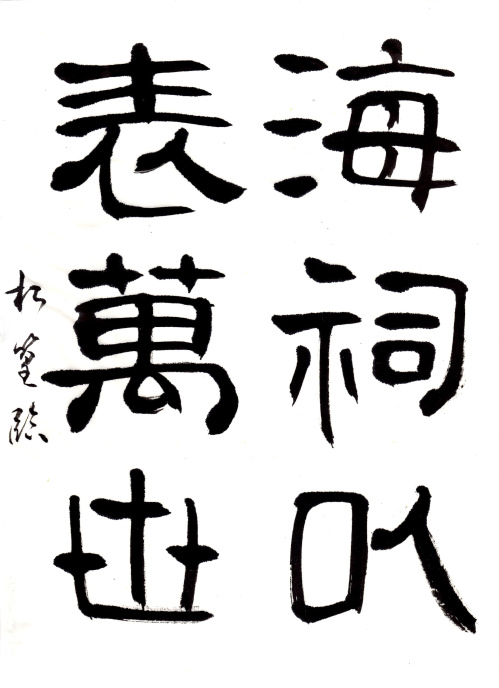 海祠以
表萬世
松篁臨